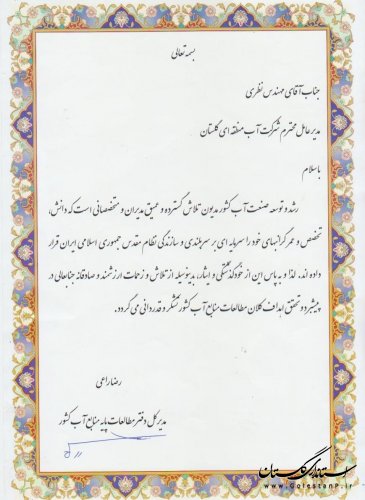 بسمه تعالی
جناب آقای مهندس نظری
مدیر عامل محترم شرکت آب منطقه ای گلستان
باسلام
رشد و توسعه صنعت آب کشور مدیون تلاش گسترده و عمیق مدیران و متخصصانی است که دانش،
تخصص و عمر گرانبهای خود را سرمایه ای بر سربلندی و سازندگی نظام مقدس جمهوری اسلامی ایران قرار
داده اند. لذا و به پاس این از خودگذشتگی و ایثار، بدینوسیله از تلاش و زحمات ارزشمند و صادقانه جنابعالی در
پیشبرد و تحقق اهداف کلان مطالعات منابع آب کشور تشکر و قدردانی می گردد.
رضا راعی
مدیر کل دفتر مطالعات پایه منابع آب کشور
استانداری گلستان
www.GolestanP.ir